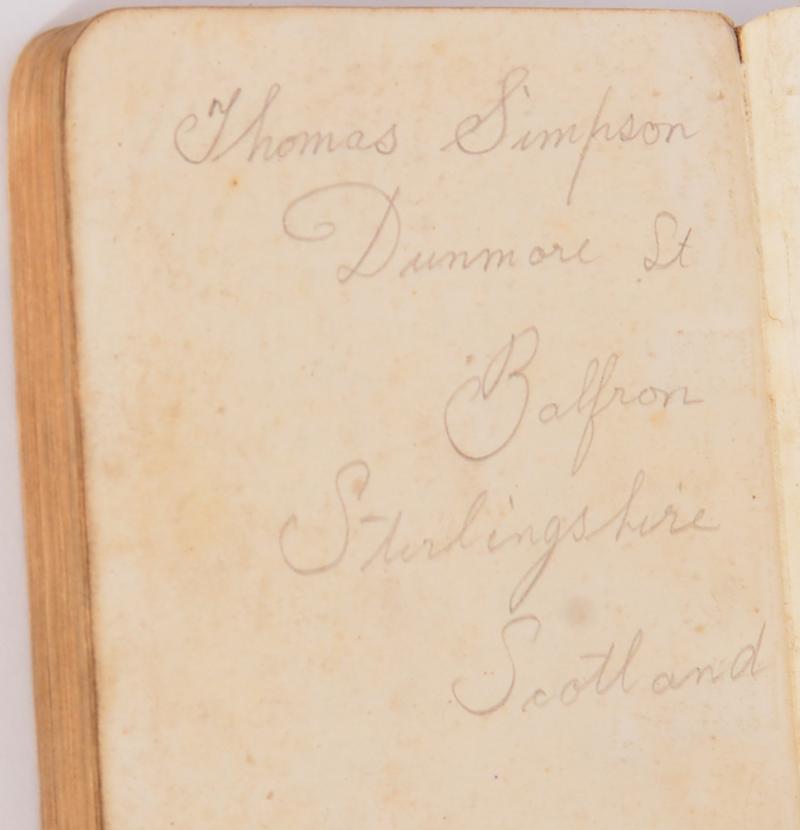 Thomas Simpson
Dunmore St
Balfron
Stirlingshire
Scotland